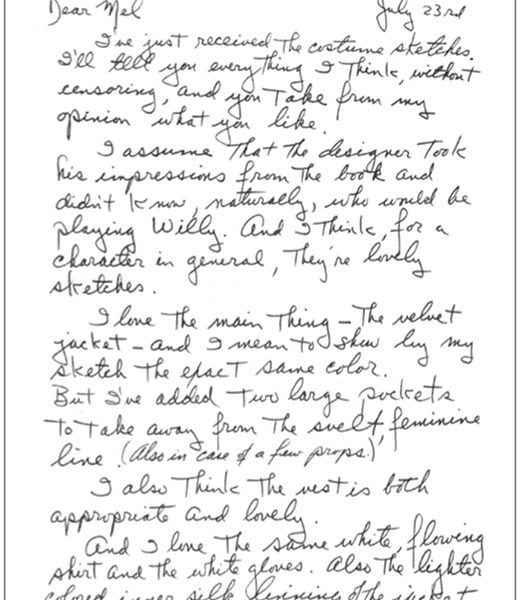 Dear Mel July 23rd
I've just received the costume sketches.
I'll tell you everything I think, without
censoring, and you take from my
opinion what you like.
I assume that the designer took
his impressions from the book and
didn't know, naturally, who would be
playing Willy. And I think, for a
character in general, they're lovely
sketches.
I love the main thing – the velvet
jacket – and I mean to show by my
sketch the exact same color.
But I've added two large pockets
to take away from the svelt, feminine
line. (Also in case of a few props.)
I also think the vest is both
appropriate and lovely.
And I love the same white, flowing
shirt and the white gloves. Also the lighter
colored inner silk lining of the jacket